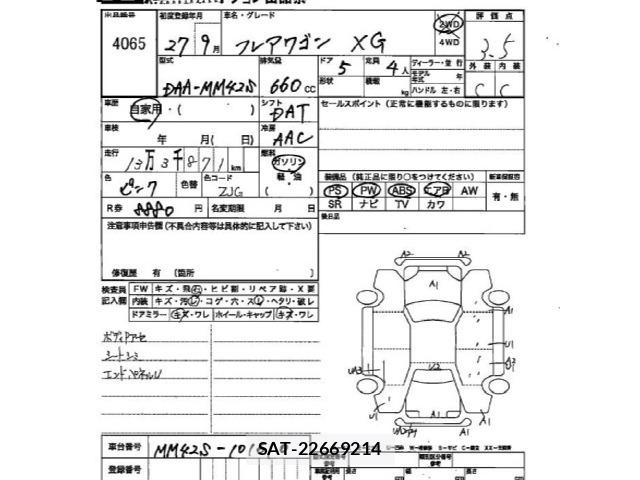 出品番号 初度登録年月 車名・グレード 評価点
4065 27年9月 フレアワゴン XG 2WD 4WD 3.5
型式 排気量 ドア 形状 5 定員 4人 積載 kg ディーラー・並行 モデル年式 年 ハンドル 左・右 外装 内装
DAA-MM42S 660cc C C
車歴 自家用・( ) シフト DAT セールスポイント (正常に機能するものに限ります)
車検 年 月( 日) 冷房 AAC
走行 13万3千871km 燃料 ガソリン 軽・油 ( )
装備品 (純正品に限り○をつけてください) 新車保証書
色 ピンク 色替 色コード ZJG
PS PW ABS エアB AW 有・無
SR ナビ TV カワ
R券 8880円 名変期限 月 日
後日品
注意事項申告欄 (不具合内容等は具体的に記入して下さい)
修復歴 有 (箇所 )
検査員記入欄 FW キズ・飛石・ヒビ割・リペア跡・X要
内装 キズ・汚レ・コゲ・穴・スレ・ヘタリ・破レ
ドアミラー キズ・ワレ ホイール・キャップ キズ・ワレ
シートシミ
エンドパネルU
A2 A2
A1
U1
UA3
U2
U1 A1 A1
A1
車台番号 MM42S-101
SAT-22669214
登録番号